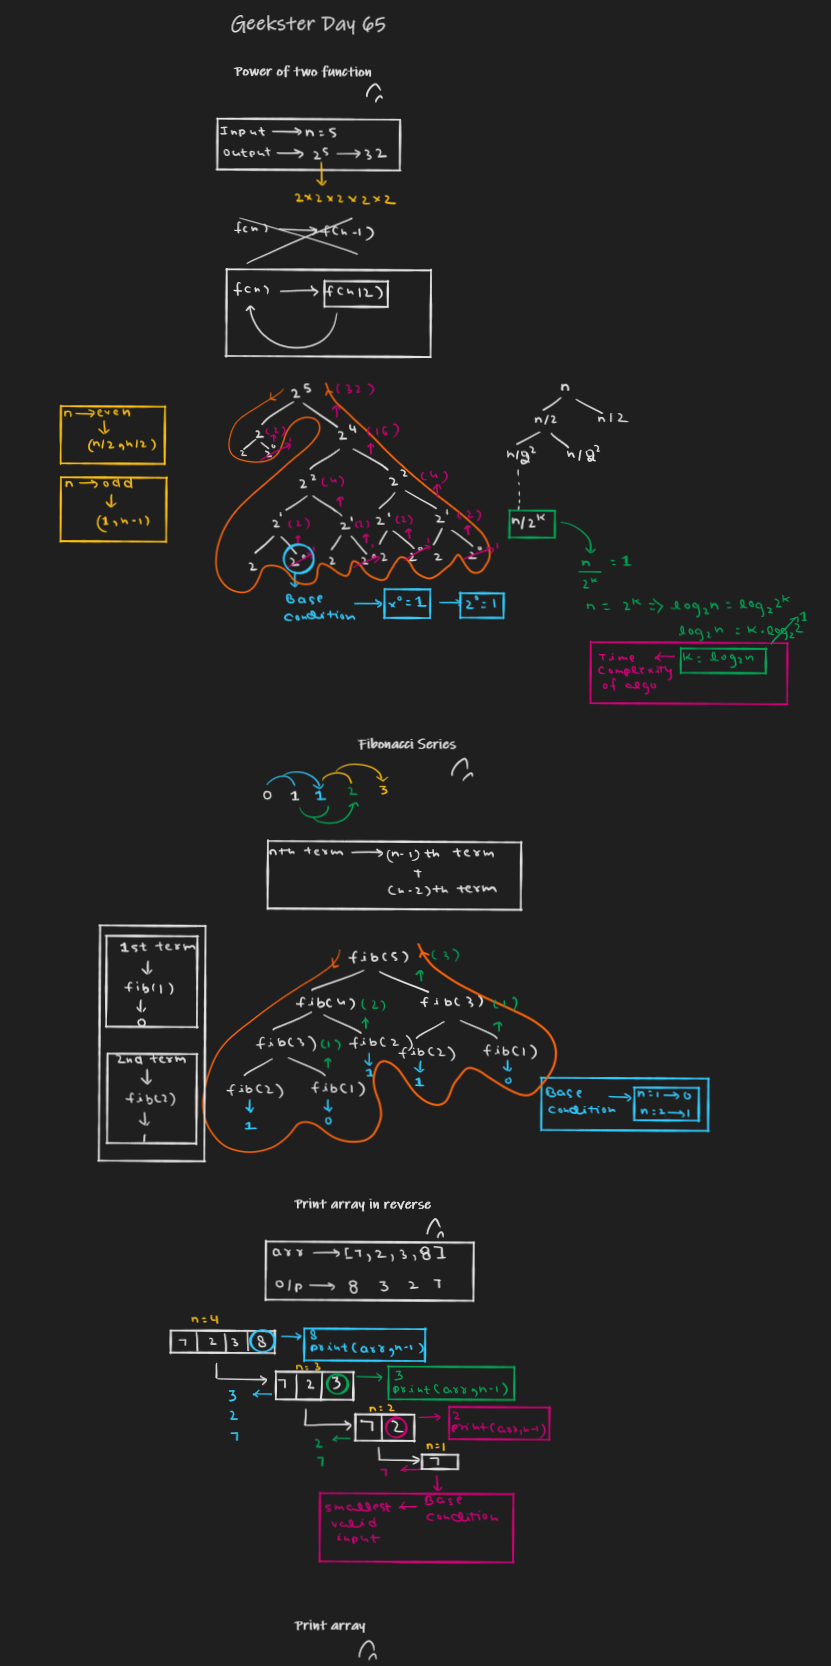 Geekster Day 65
Power of two function
Input → n = 5
Output → 2⁵ → 32
2 × 2 × 2 × 2 × 2
f(n) → f(n-1)
f(n) → f(n/2)
n → even
(n/2, n/2)
n → odd
(1, n-1)
2⁵ (32)
2 (2) 2⁴ (16)
2 2⁰
2² (4) 2² (4)
2¹ (2) 2¹ (2) 2¹ (2) 2¹ (2)
2 2⁰ 2 2⁰ 2 2⁰ 2 2⁰
Base condition → x⁰ = 1 → 2⁰ = 1
n
n/2 n/2
n/2² n/2²
n/2ᵏ
n/2ᵏ = 1
n = 2ᵏ ⇒ log₂n = log₂2ᵏ
log₂n = k·log₂2 1
Time Complexity of algo ← k = log₂n
Fibonacci Series
0 1 1 2 3
nth term → (n-1)th term
+
(n-2)th term
1st term
fib(1)
0
2nd term
fib(2)
1
fib(5) (3)
fib(4) (2) fib(3) (1)
fib(3) (1) fib(2) fib(2) fib(1)
1 1 0
fib(2) fib(1)
1 0
Base condition → n=1 → 0
n=2 → 1
Print array in reverse
arr → [7, 2, 3, 8]
O/p → 8 3 2 7
n=4
7 2 3 8 → 8
print(arr, n-1)
n=3
7 2 3 → 3
print(arr, n-1)
3
2
7
n=2
7 2 → 2
print(arr, n-1)
2
7
n=1
7
7
smallest valid input ← Base condition
Print array